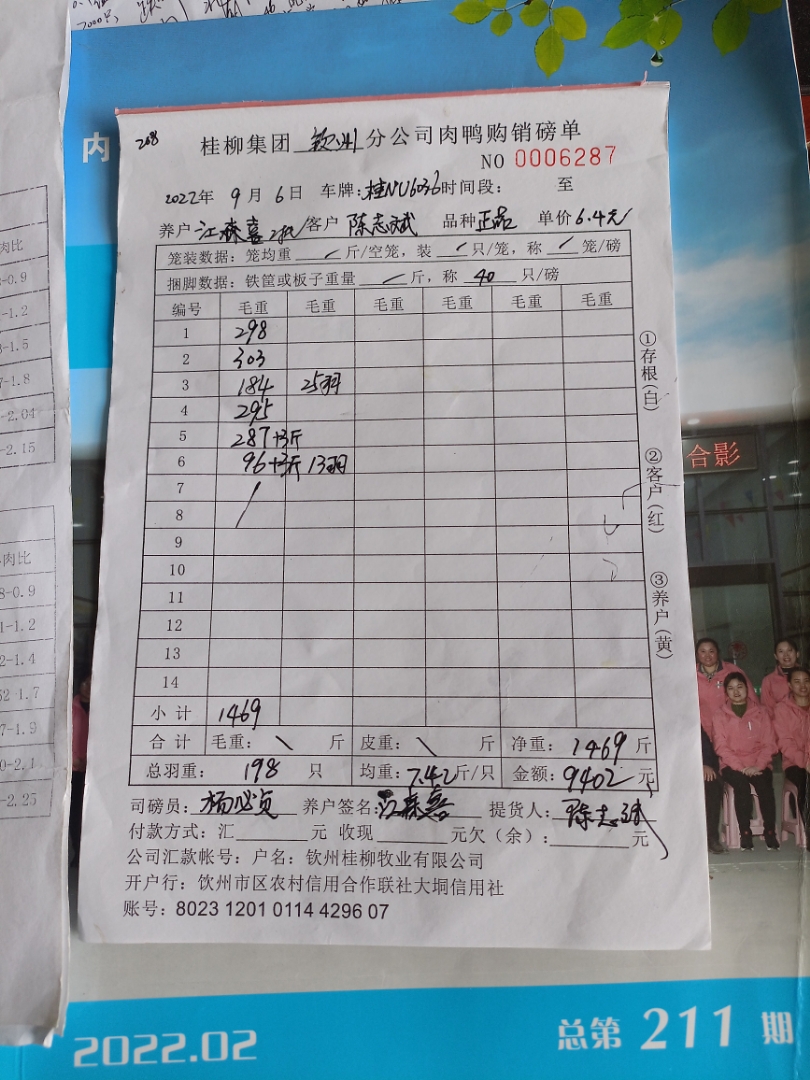 7000只
内
208
桂柳集团 钦州 分公司肉鸭购销磅单
NO 0006287
2022年 9月 6日 车牌:桂NU6036时间段: 至
养户 江森喜 客户 陈志斌 品种 正品 单价6.4元
笼装数据:笼均重 / 斤/空笼,装 / 只/笼,称 / 笼/磅
捆脚数据:铁筐或板子重量 / 斤,称 40 只/磅
编号 毛重 毛重 毛重 毛重 毛重 毛重
1 298
2 303
3 184 25羽
4 295
5 287+3斤
6 96+3斤 13羽
7
8
9
10
11
12
13
14
小计 1469
合计 毛重: \ 斤 皮重: \ 斤 净重: 1469 斤
总羽重: 198 只 均重: 7.42斤/只 金额: 9402 元
司磅员: 养户签名: 江森喜 提货人: 陈志斌
付款方式:汇 元 收现 元欠(余): 元
公司汇款帐号:户名:钦州桂柳牧业有限公司
开户行:钦州市区农村信用合作联社大垌信用社
账号:8023 1201 0114 4296 07
①存根(白)
②客户(红)
③养户(黄)
合影
肉比
-0.9
-1.2
-1.5
-1.8
-2.04
-2.15
肉比
8-0.9
1-1.2
2-1.4
52-1.7
7-1.9
0-2.1
-2.25
2022.02
总第 211 期